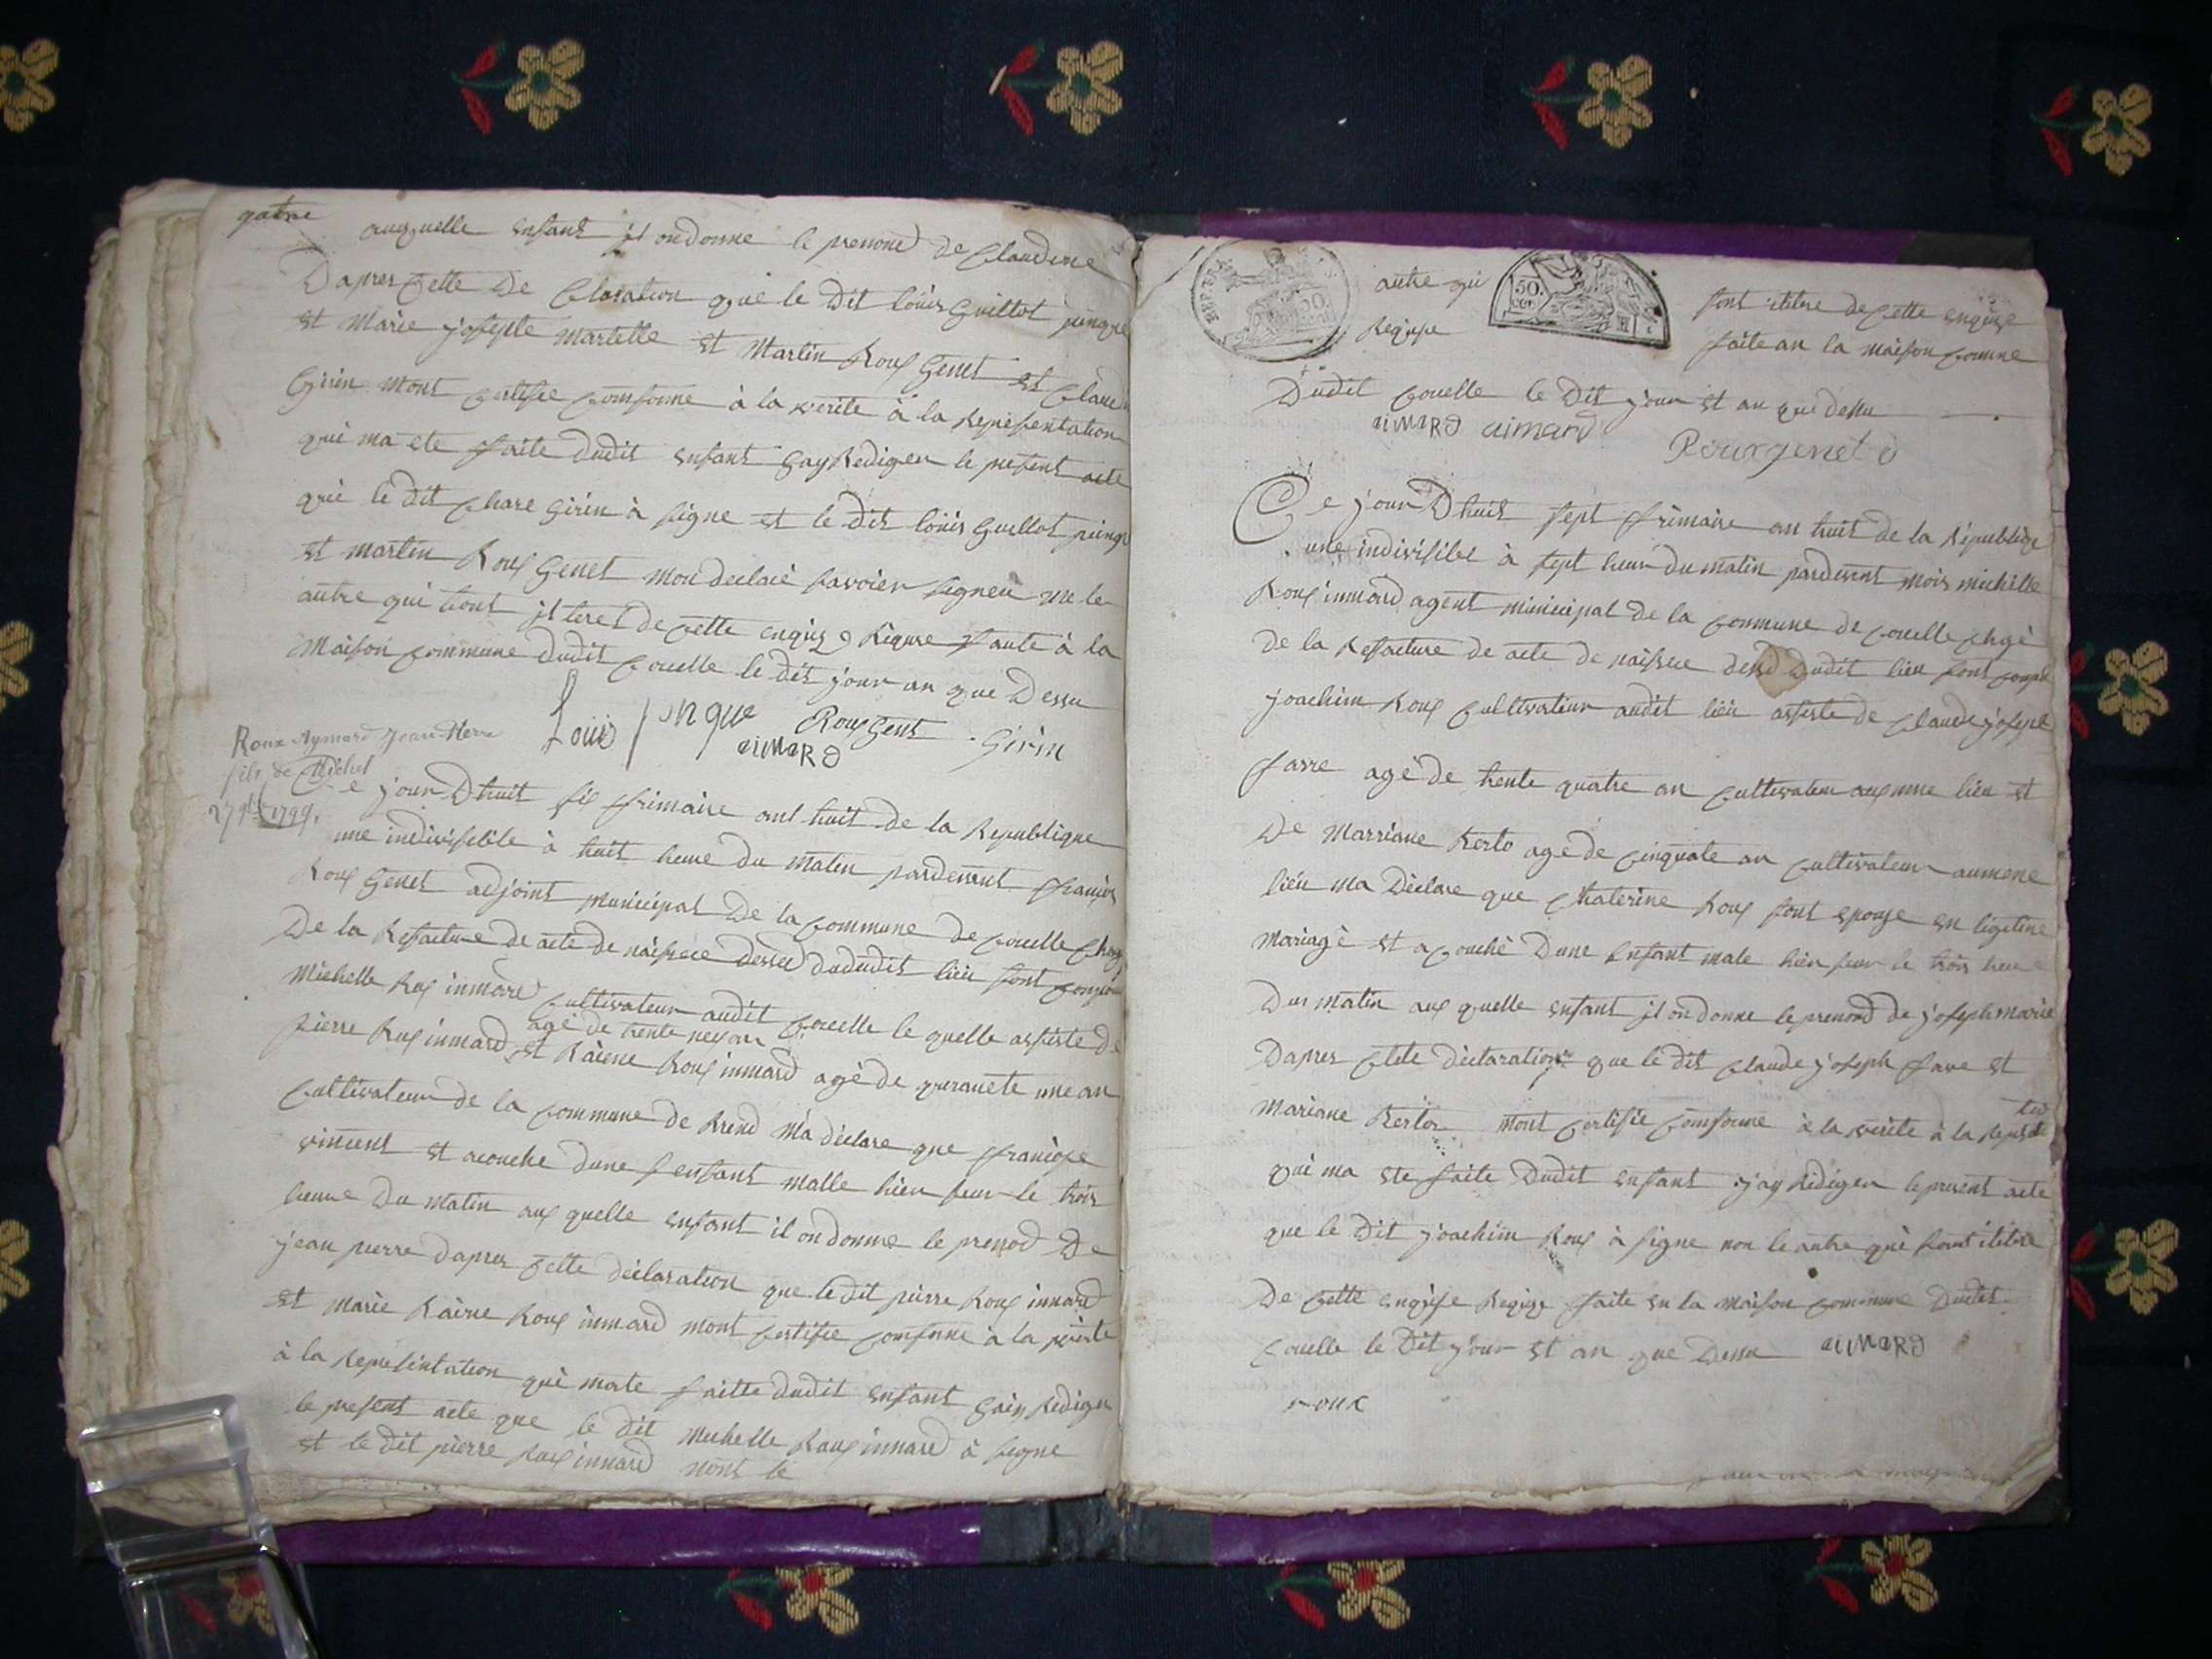 qatre
auxquelle enfant il ondonne le prenomd de Claudine
Dapres cette De Claration que le Dit louis Guillot pinque
et Marie josephe Martelle et Martin Roux Genet et Claude
Girin mont certifie comforme à la verite à la Representation
qui ma ete faite dudit enfant Gay Rediger le present acte
que le dit Girin à signe et le dit louis Guillot pinque
et martin Roux Genet mon declaré savoier signer ne le
autre qui font de cette engise Requise faite à la
Maison commune dudit couelle le dit jour an que Dessu
Louis pinque Roux Genet Girin
aiMaRd
Roux Aymard Jean Pierre
fils de Michel
27 9bre 1799.
Ce jour Dhuit six frimaire ant huit de la Republique
une indivisible à huit heure du matin pardevent françois
Roux Genet adjoint municipal De la commune de couelle Charge
De la Refacture de acte de naissece dudit lieu sont
Michelle Roux inmard cultivateur audit couelle le quelle assiste de
pierre Roux inmard agé de trente neuf an et Raiene Roux inmard agé de quranete une an
cultivateur de la commune de Rrend Ma déclare que françoise
vincent et acouche dune enfant malle hier seur le trois
heure Du matin aux quelle enfant il ondonne le prenod De
jean pierre dapres cette declaration que ledit pierre Roux inmard
et marie Raiene Roux inmard mont certifie comforme à la verite
à la Representation qui mate faitte dudit enfant Gaiy Rediger
le present acte que le dit Michelle Roux inmard à signe
et le dit pierre Roux inmard nont le
autre qui
Requise
REP. FRA.
50. CEN.
font ititre de cette engise
faite an la maison comune
Dudit couelle le Dit jour et an que dessu
aiMaRd aimard
Rouxgenet
Ce jour Dhuit sept frimaire an huit de la Republiqe
une indivisible à sept heur du matin pardevent mois michelle
Roux inmard agent municipal de la commune de couelle chagé
de la Refacture de acte de naissece dudit lieu sont
joachim Roux cultivateur audit lieu assiste de claude joseph
favre agé de trente quatre an cultivateur aux mme lieu et
De Marriane Kerto age de cinquate an cultivateur aumene
lieu ma Déclare que Chaterine Roux sont epouse en ligitime
Mariage et acouché Dune Enfant male hier seur le trois heure
Dur matin aux quelle enfant il ondonne le prenond de joseph marie
Dapres cete déclaration que le dit claude joseph favre et
Mariane Kertor mont certifie comforme à la verite à la
qui ma ete faite Dudit enfant jay Rediger le present acte
que le Dit joachim Roux à signe non le autre qui font ititre
De cette engise Requise faite en la maison commune Dudit
couelle le Dit jour et an que Dessu aiMaRd
roux